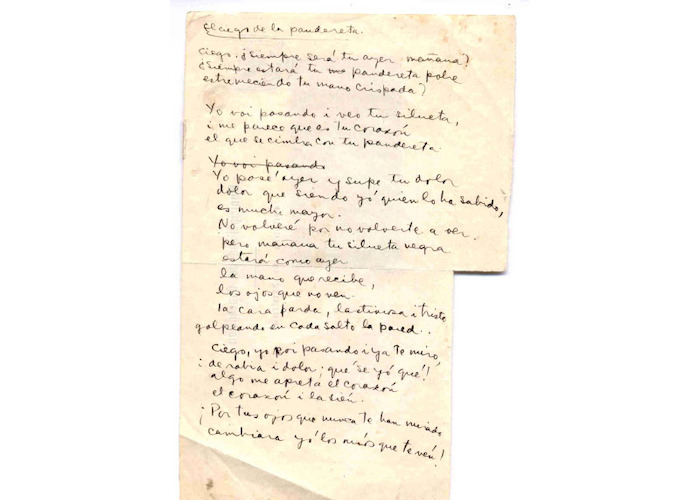 El ciego de la pandereta.
Ciego, ¿Siempre será tu ayer mañana?
¿Siempre estará tu pandereta pobre
estremeciendo tu mano crispada?
Yo voi pasando i veo tu silueta,
i me parece que es tu corazón
el que se cimbra con tu pandereta
Yo voi pasando
Yo pasé ayer y supe tu dolor
dolor que siendo yó quien lo ha sabido,
es mucho mayor.
No volveré por no volverte a ver.
pero mañana tu silueta negra
estará como ayer
la mano que recibe,
los ojos que no ven.
la cara parda, lastimosa i triste
golpeando en cada salto la pared..
Ciego, yo voi pasando i ya te miró,
i de rabia i dolor ¡qué sé yó qué!
algo me aprieta el corazón
el corazón i la sien.
¡Por tus ojos que nunca te han mirado
cambiara yó los mios que te ven!